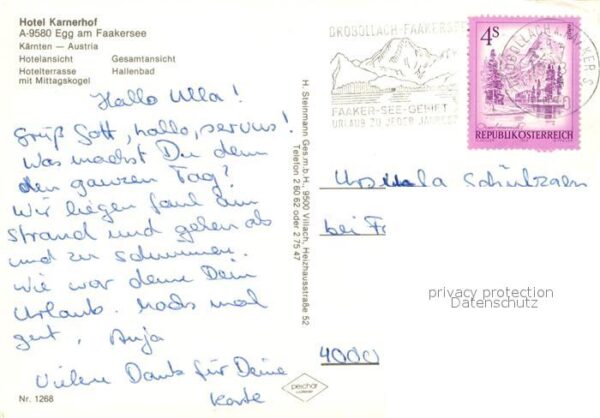 Hotel Karnerhof
A-9580 Egg am Faakersee
Kärnten — Austria
Hotelansicht Gesamtansicht
Hotelterrasse Hallenbad
mit Mittagskogel
Hallo Ulla!
Grüß Gott, hallo, servus!
Was machst Du denn
den ganzen Tag?
Wir liegen faul am
Strand und gehen ab
und zu schwimmen.
Wie war denn Dein
Urlaub. Machs mal
gut, Anja
Vielen Dank für Deine
Karte
Nr. 1268
H. Steinmann Ges.m.b.H., 9500 Villach, Heizhausstraße 52
Telefon 2 60 62 oder 2 75 47
DROBOLLACH-FAAKERSEE
FAAKER-SEE-GEBIET
URLAUB ZU JEDER JAHRESZEIT
4S
REPUBLIK ÖSTERREICH
Ursula
bei Fr
privacy protection
Datenschutz
4000